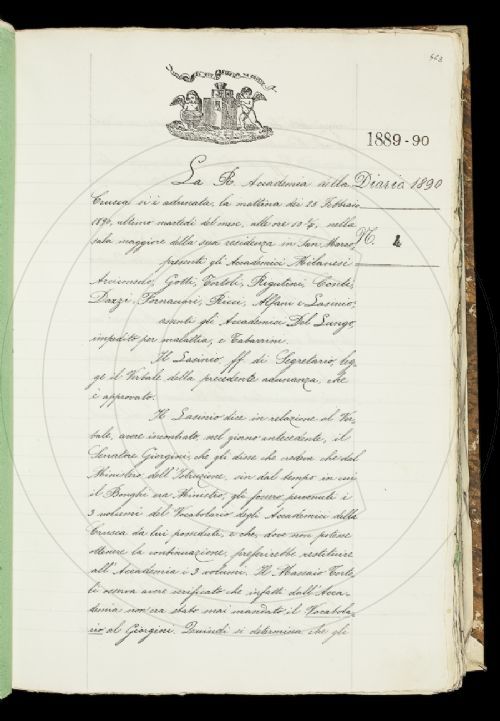 423
1889-90
La R. Accademia della
Diario 1890
Crusca si è adunata, la mattina dei 25 Febbraio
1890, ultimo martedì del mese, alle ore 10 ½, nella
N. 1
sala maggiore della sua residenza in San Marco,
presenti gli Accademici Milanesi
Arciconsolo, Gotti, Tortoli, Rigutini, Conti,
Dazzi, Fornaciari, Ricci, Alfani e Lasinio;
assenti gli Accademici Del Lungo,
impedito per malattia, e Tabarrini.
Il Lasinio, ff. di Segretario, leg-
ge il Verbale della precedente adunanza, che
è approvato.
Il Lasinio dice in relazione al Ver-
bale, avere incontrato, nel giorno antecedente, il
Senatore Giorgini, che gli disse che credeva che dal
Ministero dell'Istruzione, sin dal tempo in cui
il Bonghi era Ministro, gli fossero pervenuti i
3 volumi del Vocabolario degli Accademici della
Crusca da lui posseduti, e che, dove non potesse
ottenere la continuazione, preferirebbe restituire
all'Accademia i 3 volumi. Il Massaio Torto-
li osserva avere verificato che infatti dall'Acca-
demia non era stato mai mandato il Vocabola-
rio al Giorgini. Quindi si determina che gli